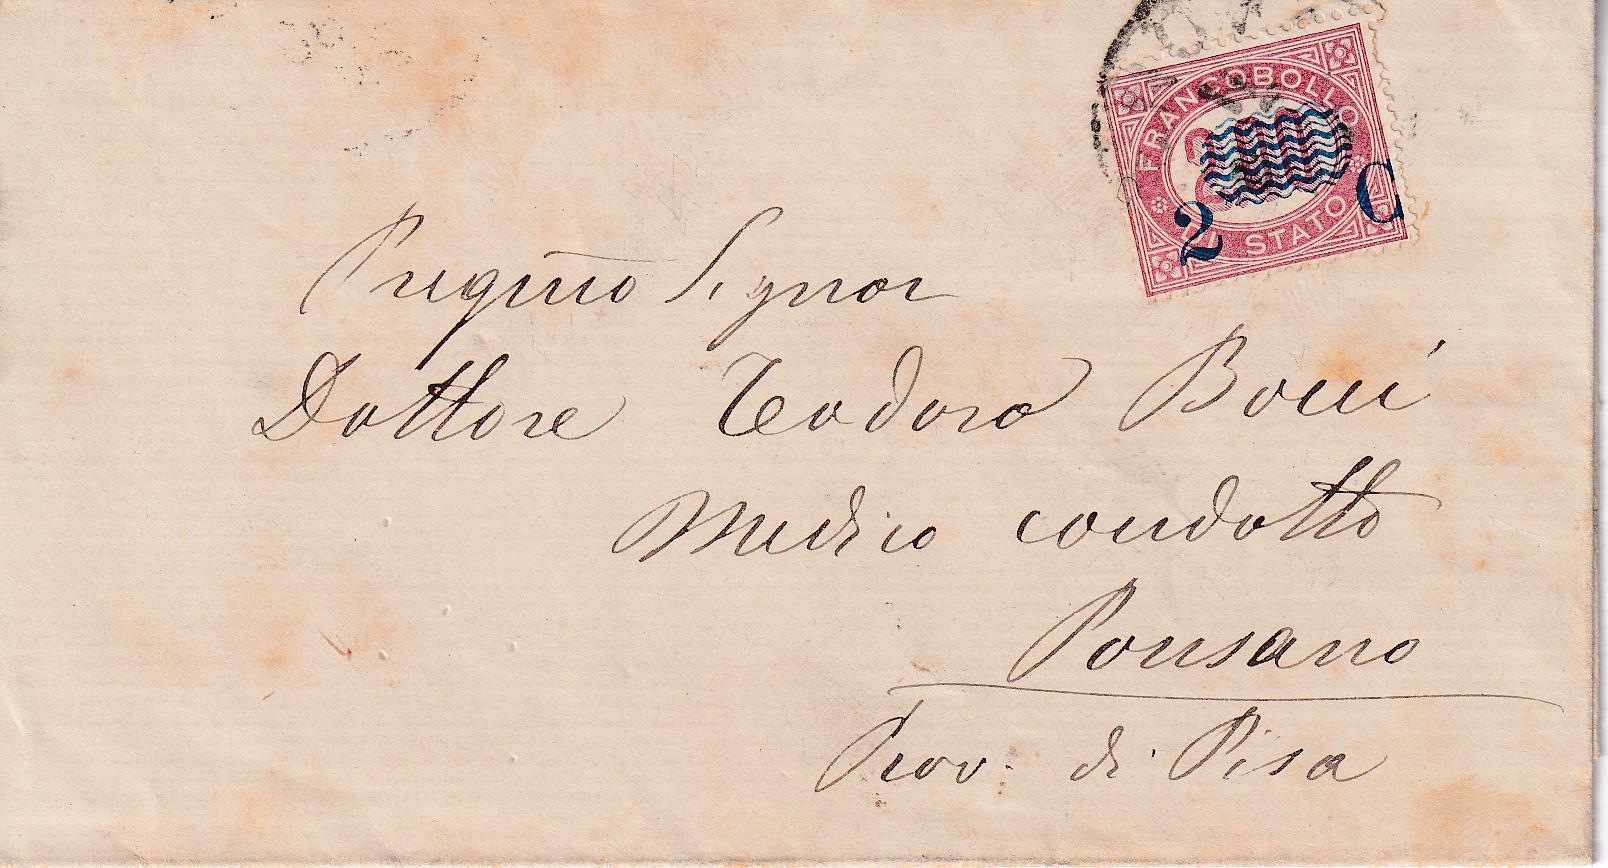 FRANCOBOLLO
DI STATO
2 C
Pregmo Signor
Dottore Teodoro Bocci
Medico condotto
Ponsano
Prov. di Pisa